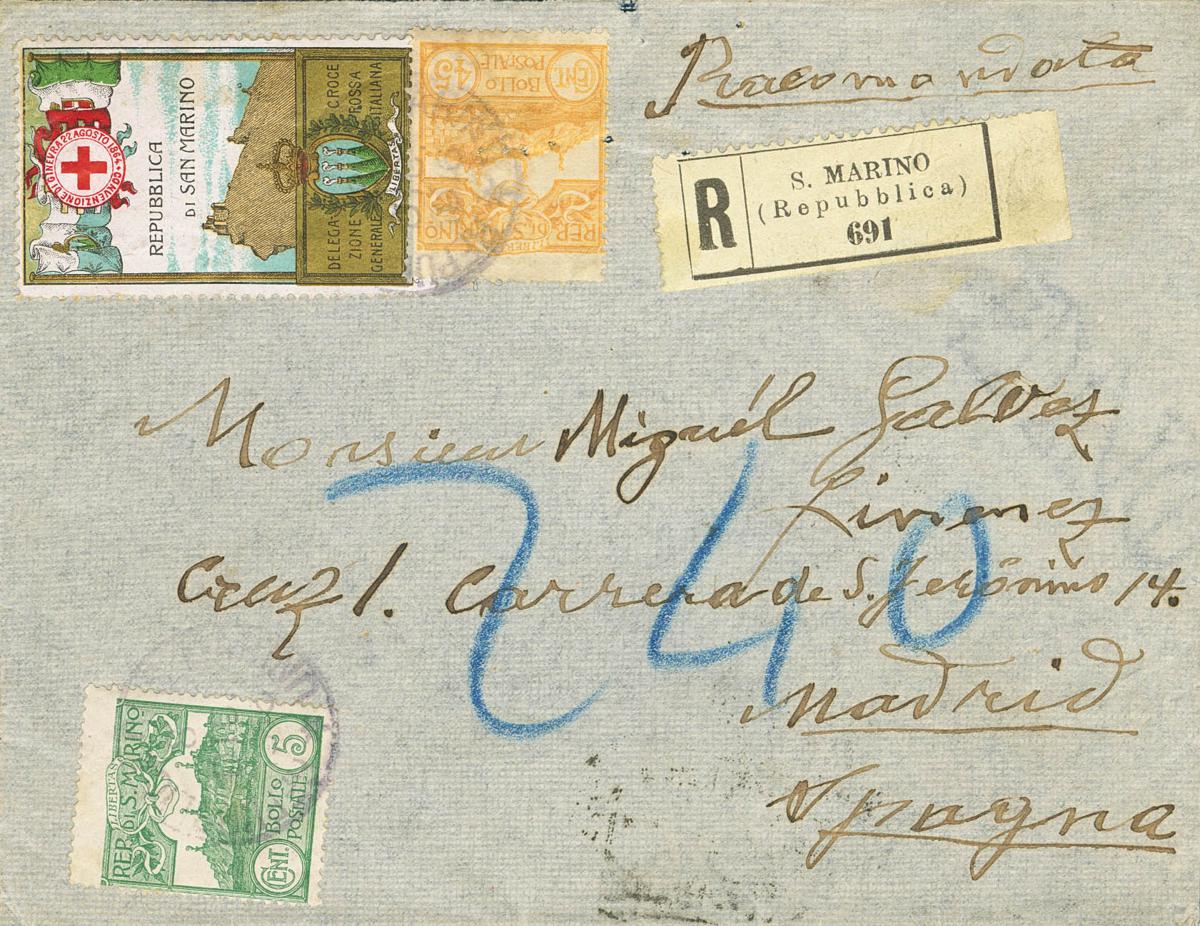 Racomandata
R
S. MARINO
(Repubblica)
691
CONVENZIONE DI GINEVRA 22 AGOSTO 1864
REPUBBLICA
DI SAN MARINO
DELEGA-
ZIONE
GENERALE
CROCE
ROSSA
ITALIANA
LIBERTAS
CENT.
BOLLO
POSTALE
45
REP.
DI S. MARINO
LIBERTAS
Monsieur Miguél Galvez
Cruz 1. Carrera de S. Jerónimo 14.
Madrid
Spagna
240
REP.
DI S. MARINO
LIBERTAS
CENT.
BOLLO
POSTALE
5